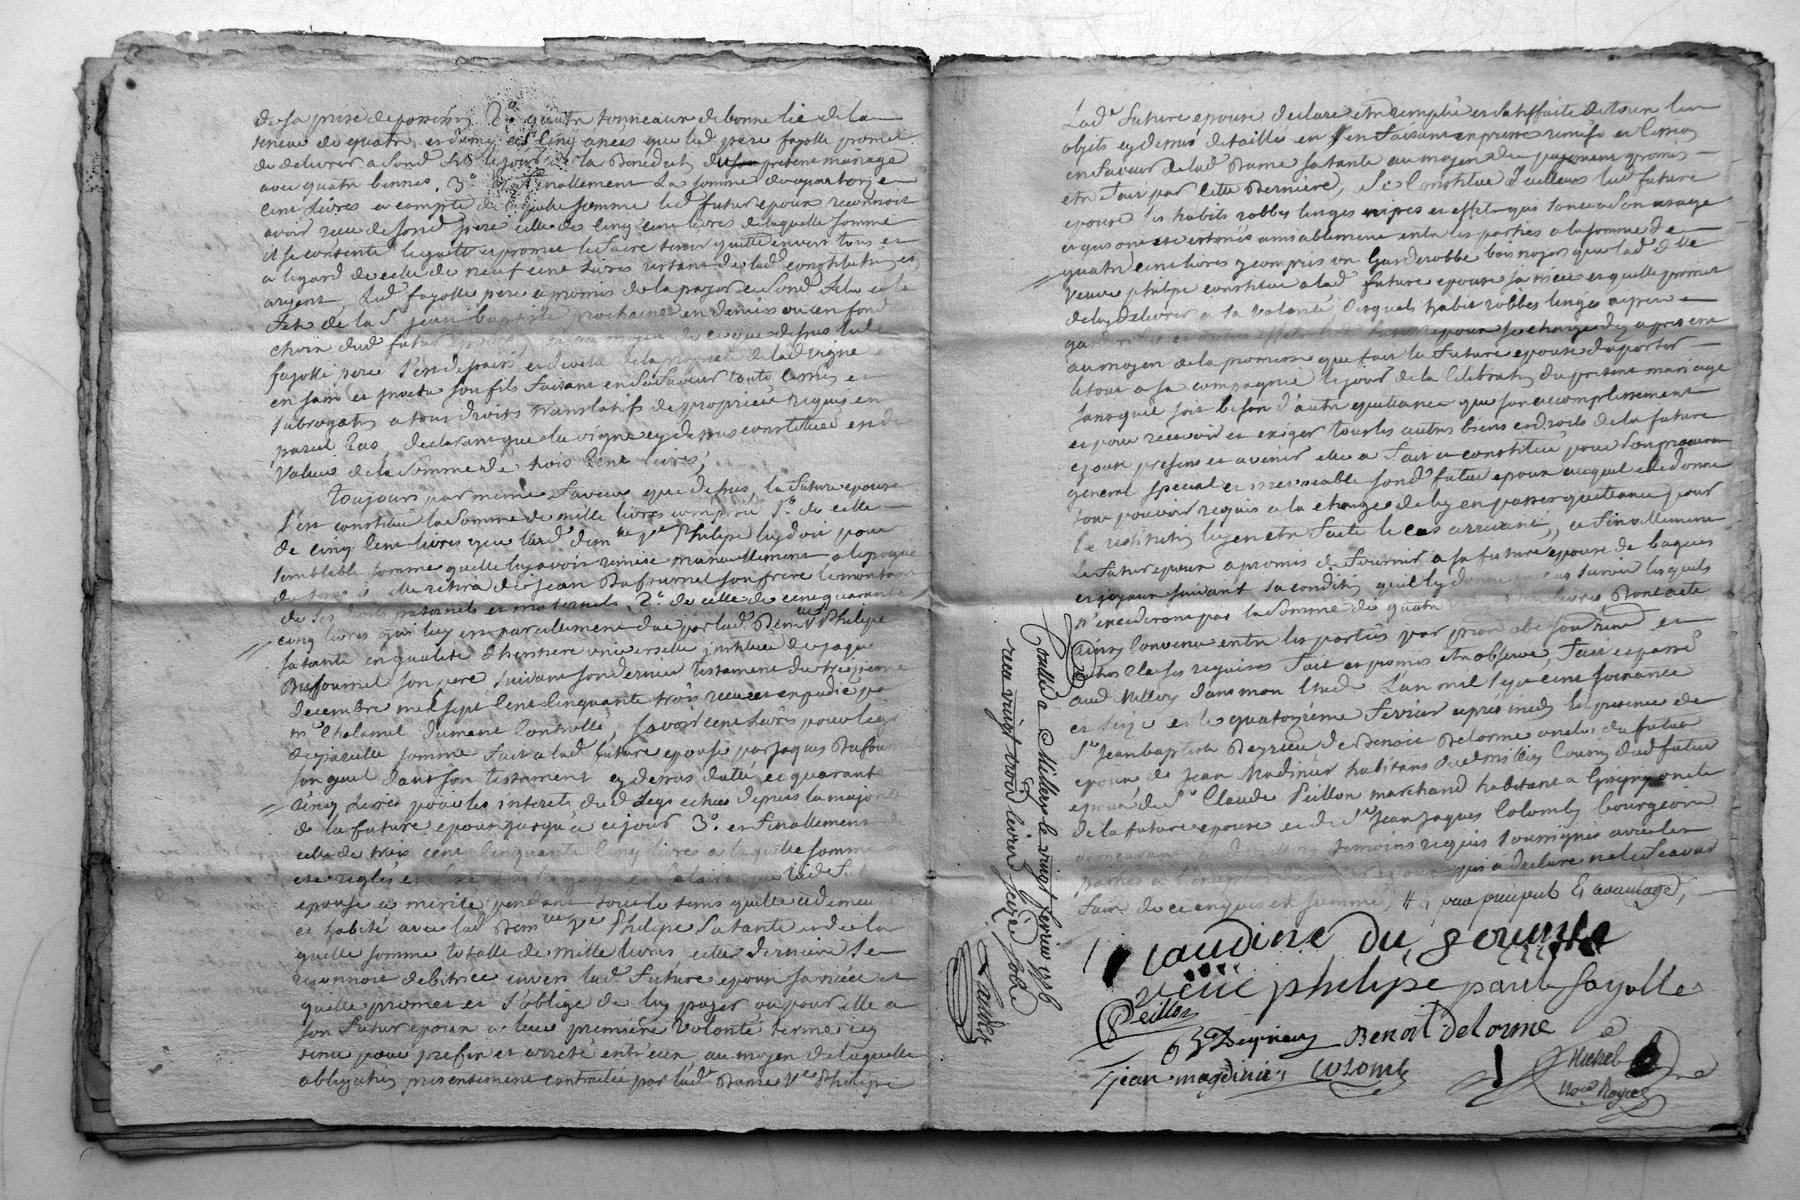 de sa prise de possession 2° quatre tonneaux de bonne lie de la
teneue de quatre et cinq anées que lud père fayolle promet
de delivrer a sond fils le jour de la Benedict du present mariage
avec quatre bennes. 3° et finallement La somme de quatorze
cent Livres a compte de laquelle somme led futur epoux reconnoit
avoir receu de sond père celle de cinq cent livres de laquelle somme
il se contente le quitte et promet le faire tenir quitte envers tous et
a legard de celle de neuf cent Livres restant de lad constitution en
argent, Led fayolle père a promis de la payer a sond fils a la
fete de la S. jean baptiste prochaine en deniers ou en fond
choix dud futur epoux, et au moyen de ce que dessus led
fayolle père s'est dessaisi et devetu de la proprieté de lad vigne
en saisi et investu son fils faisant en sa faveur toute
subrogation a tous droits translatifs de proprieté requis en
pareil cas, declarant que la vigne cy dessus constituée est de
Valeur de la Somme de trois Cent livres,
Toujours par meme faveur que dessus la future epouse
s'est constitué la Somme de mille livres 1° de celle
de cinq Cent livres que lad dem.lle v.ve Philipe luy doit pour
semblable somme quelle luy avoir remise manuellement a lepoque
elle retira de jean Dufournel son frere le montant
de ses droits paternels et maternels, 2° de celle de cent quarante
cinq livres qui luy est pareillement due par lad Dem V.ve Philipe
sa tante en qualité d'heritiere universelle instituée de jaque
Dufournel son pere suivant son dernier testament du treizieme
decembre mil sept Cent Cinquante trois receu et expedié par
m.e Chalamel dument controllé, savoir cent livres pour legs
de pareille somme fait a lad future epouse par jaques Dufournel
son ayeul dans son testament cy dessus daté, et quarante
cinq Livres pour les interets dud Legs echeus depuis la majorité
de la future epouse jusqu'a ce jour 3° et finallement
celle de trois cent Cinquante Cinq livres a laquelle somme
eté reglés que lad fut
epouse a merité pendant tout le tems quelle a demeuré
et habité avec lad Dem V.ve Philipe Sa tante de la
quelle somme totalle de mille livres cette derniere se
reconnoit debitrice envers lad future epouse sa niéce et
quelle promet et s'oblige de luy payer ou pour elle a
son futur epoux a leur premiere Volonté terme cy
pour prefix et arreté entr'eux au moyen de laquelle
obligation presentement contractée par lad Dame V.ve Philipe
Lad.e future epouse declare etre remplie et satisfaitte de tous les
objets cy dessus detaillés en faisant expresse remise et
en faveur de lad Dame sa tante au moyen du payement promis
etre fait par Cette Derniere, Se Constitue d'ailleurs lad future
epouse ses habits robbes linges nippes et effets qui sont a son usage
et qui ont eté estimés amiablement entre les parties a la somme de
quatre cent livres y compris un Garderobbe bois noyer que lad D.lle
Veuve philipe constitue a lad future epouse sa niece et quelle promet
de luy delivrer a sa volonté, Desquels habit robbes linges nippes
garderobbe et autres effets led futur epoux se charge des a present
au moyen de la promesse que fait la future epouse d'aporter
le tout a sa compagnie le jour de la Celebration du present mariage
sans quil soit besoin d'autre quittance que son accomplissement
et pour recevoir et exiger tous les autres biens et droits de la future
epouse presens et avenir elle a fait et constitué pour son procureur
general special et irrevocable sond futur epoux auquel elle donne
tout pouvoir requis a la charge de luy en passer quittance pour
La restitution luy en etre faite le cas arrivant, et finallement
Le futur epoux a promis de fournir a sa future epouse de bagues
et joyaux suivant sa condition quil luy donne en cas survie lesquels
n'excederont pas la Somme de quatre livres Dont acte
Ainsy Convenu entre les parties par et
autres Clauses requises fait et promis etre observé, fait et passé
aud Millery dans mon etude L'an mil sept cent soixante
et seize et le quatorzième fevrier après midy En presence de
S.r Jean baptiste Deyrieu de Benoit Delorme oncles du futur
epoux de Jean Madinier habitans dud millery Cousin dud futur
epoux de S.r Claude Peillon marchand habitant a Grigny oncle
de la future epouse et de S.r Jean Jaques Colomb bourgeois
demeurant aud Millery temoins requis soussignés avec les
parties a l'exception qui a declaré ne le scavoir
faire de ce enquis et sommé, # par preciput & avantage,
Con.lé a Millery le vingt fevrier 1776
receu vingt trois livres seize sols
claudine du fournel
veuve philipe paul fayolle
Peillon
Deyrieu Benoit Delorme
jean magdinier colomb
No.re Royal